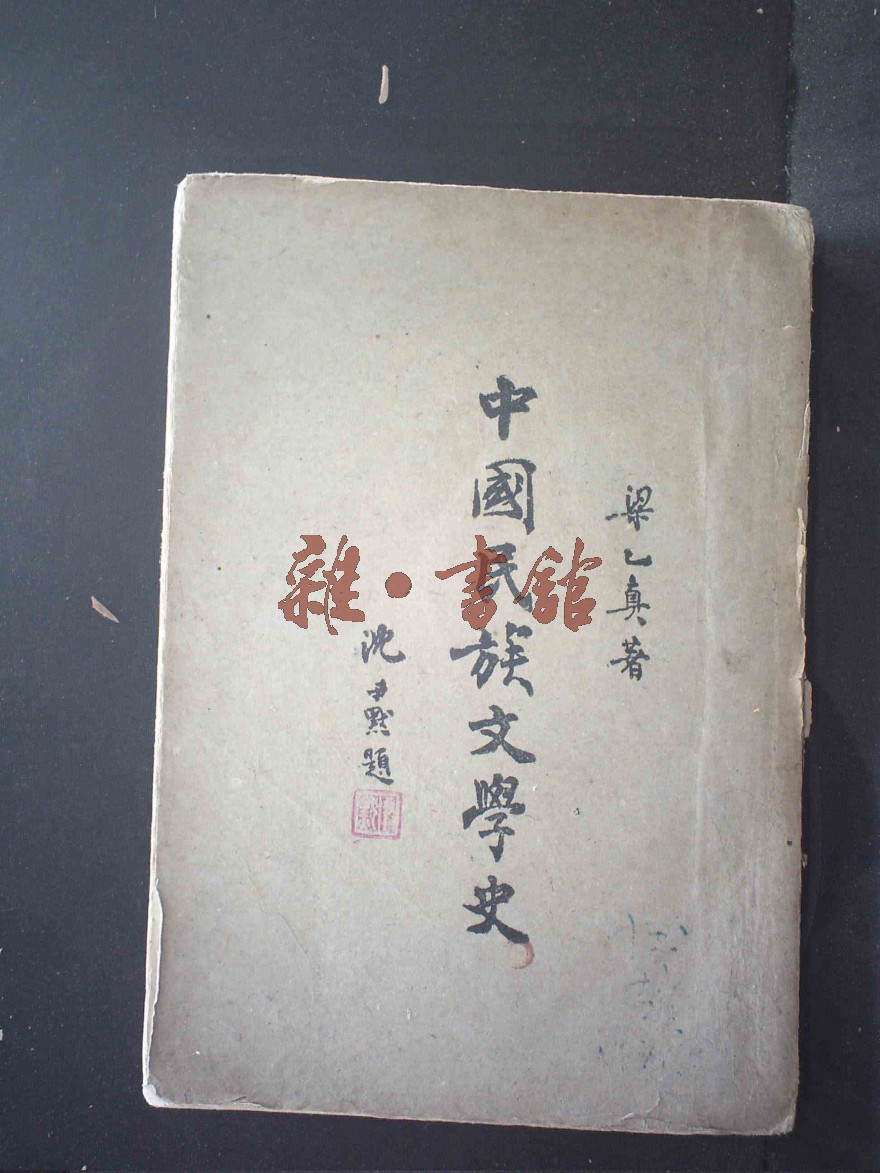 梁乙真著
中國民族文學史
沈尹默題
雜·書館